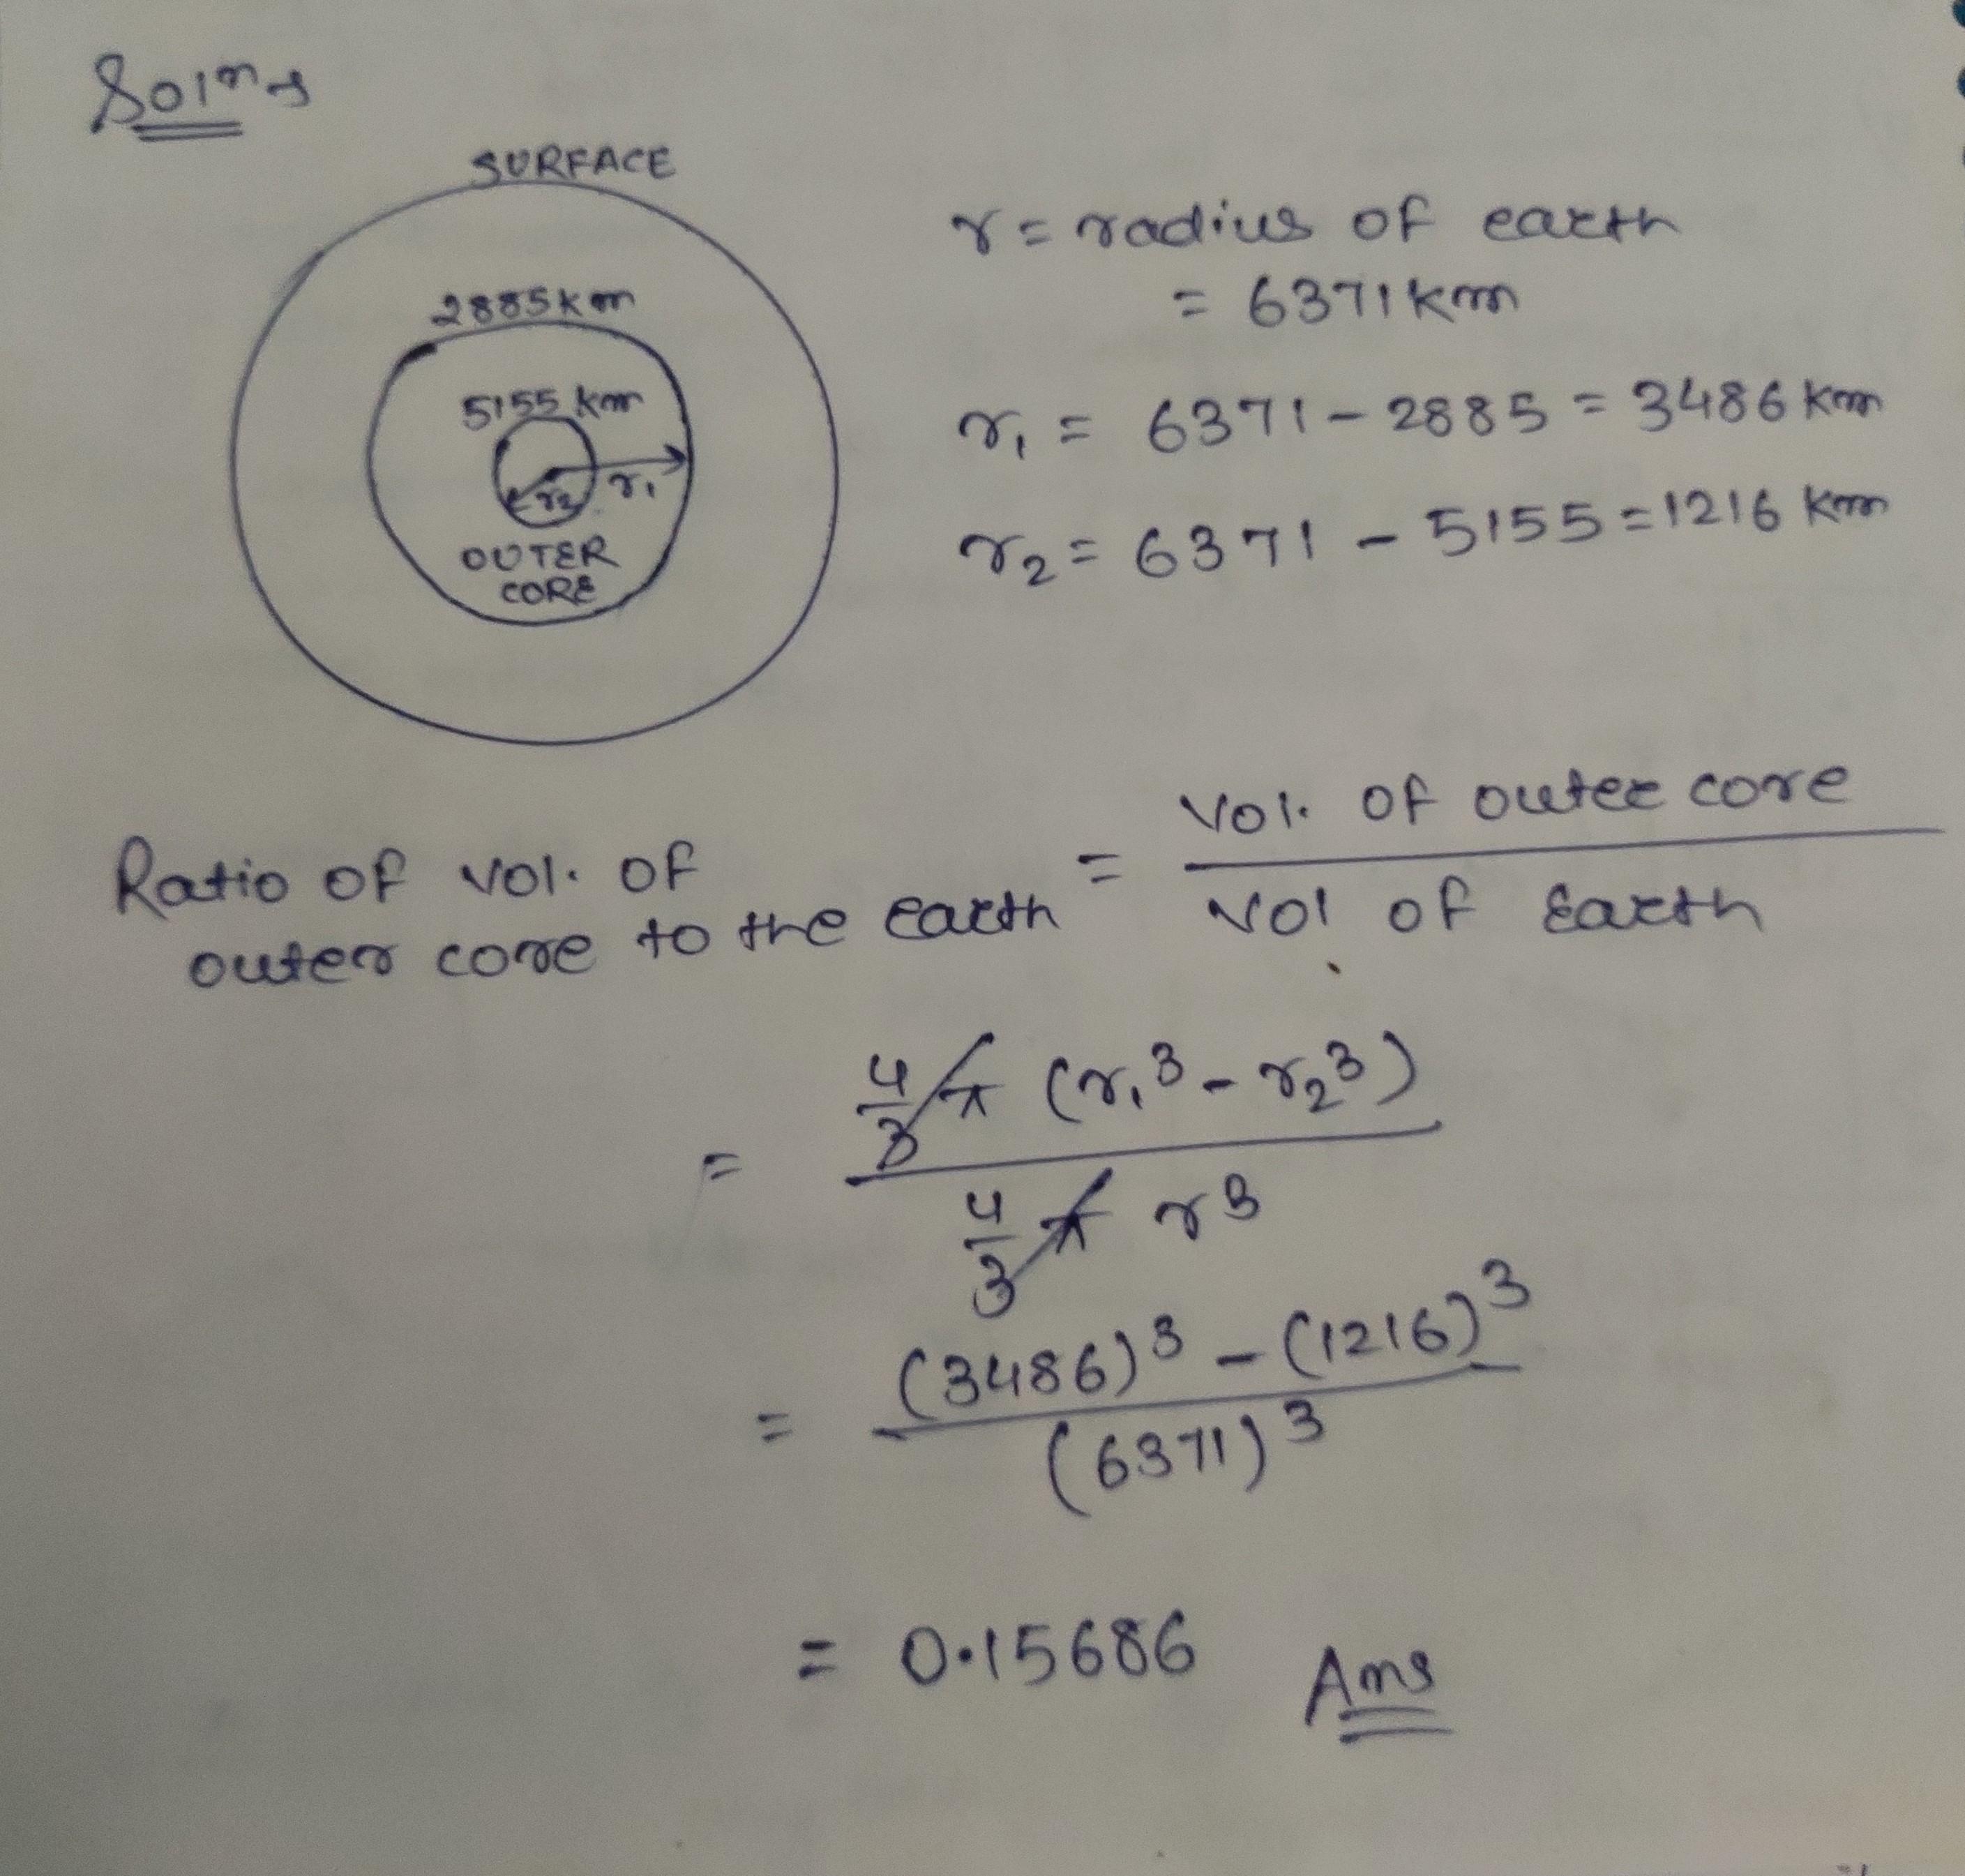 Solⁿ:
SURFACE
2885km
5155 km
r₂ r₁
OUTER
CORE
r = radius of earth
= 6371km
r₁ = 6371 - 2885 = 3486 km
r₂ = 6371 - 5155 = 1216 km
Ratio of vol. of
outer core to the earth = Vol. of outer core / Vol of Earth
= 4/3 π (r₁³ - r₂³) / 4/3 π r³
= (3486)³ - (1216)³ / (6371)³
= 0.15686 Ans